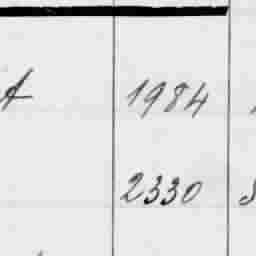 A 1984
2330